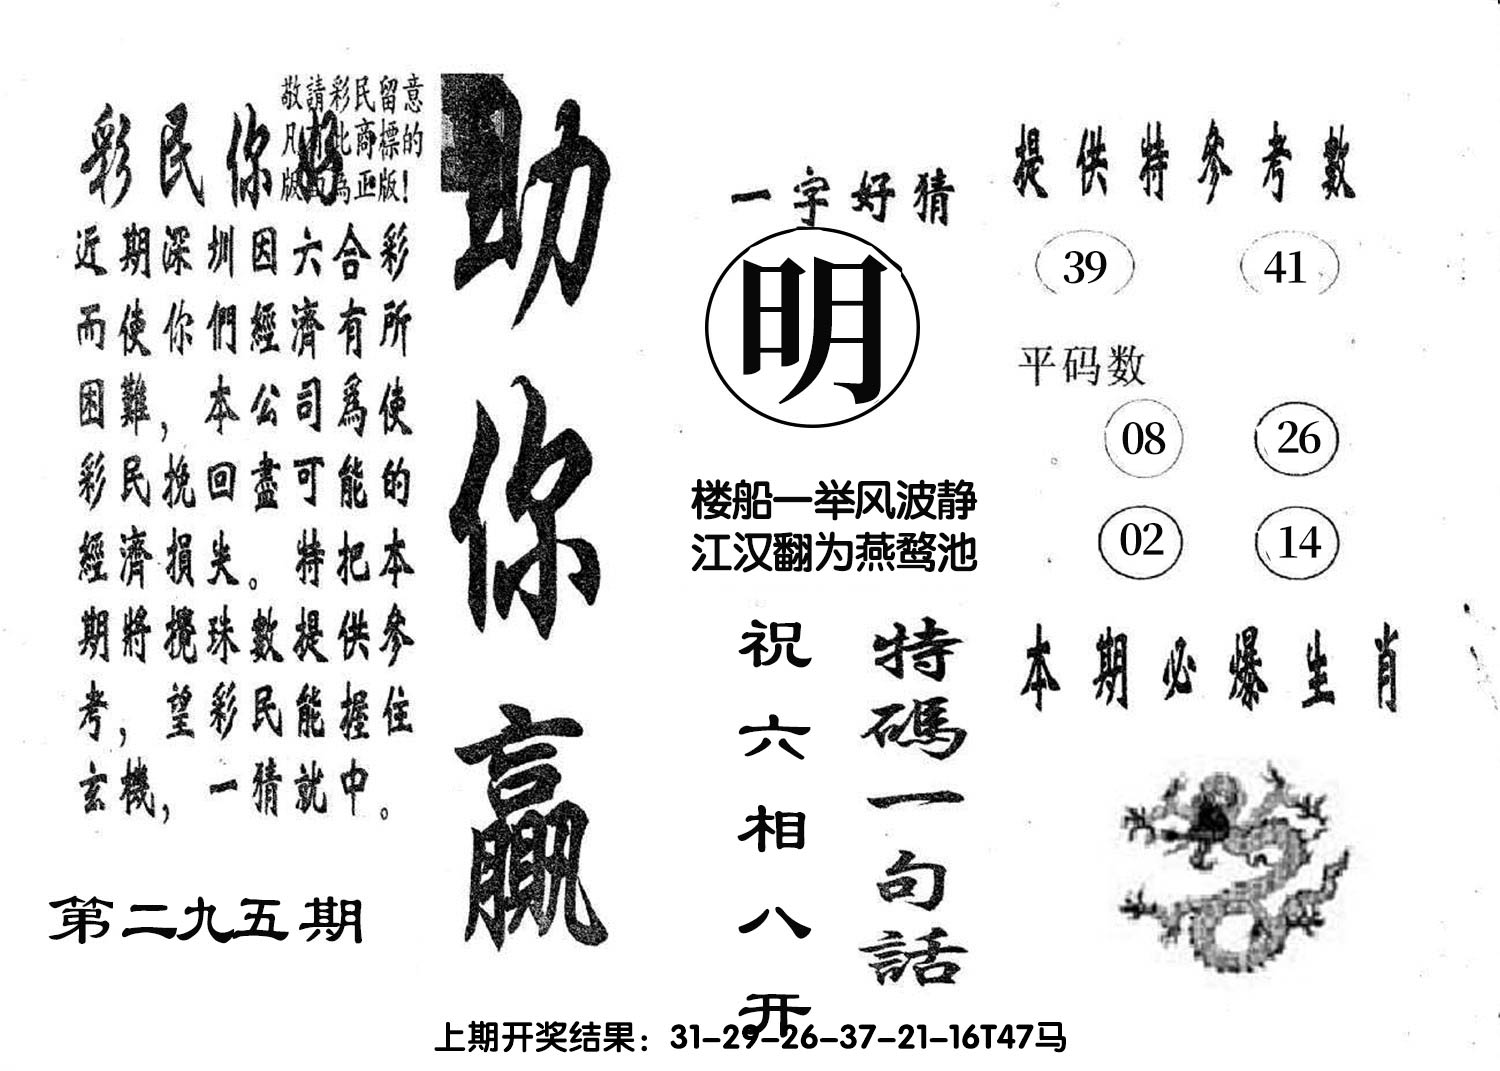 敬請彩民留意
凡有此商標的
版面為正版!
彩民你好
近期深圳因六合彩
而使你們經濟有所
困難，本公司爲使
彩民挽回盡可能的
經濟損失。特把本
期將攪珠數提供參
考，望彩民能握住
玄機，一猜就中。
第二九五期
助你贏
一字好猜
明
楼船一举风波静
江汉翻为燕鹜池
特碼一句話
祝六相八开
提供特參考數
39 41
平码数
08 26
02 14
本期必爆生肖
上期开奖结果：31-29-26-37-21-16T47马